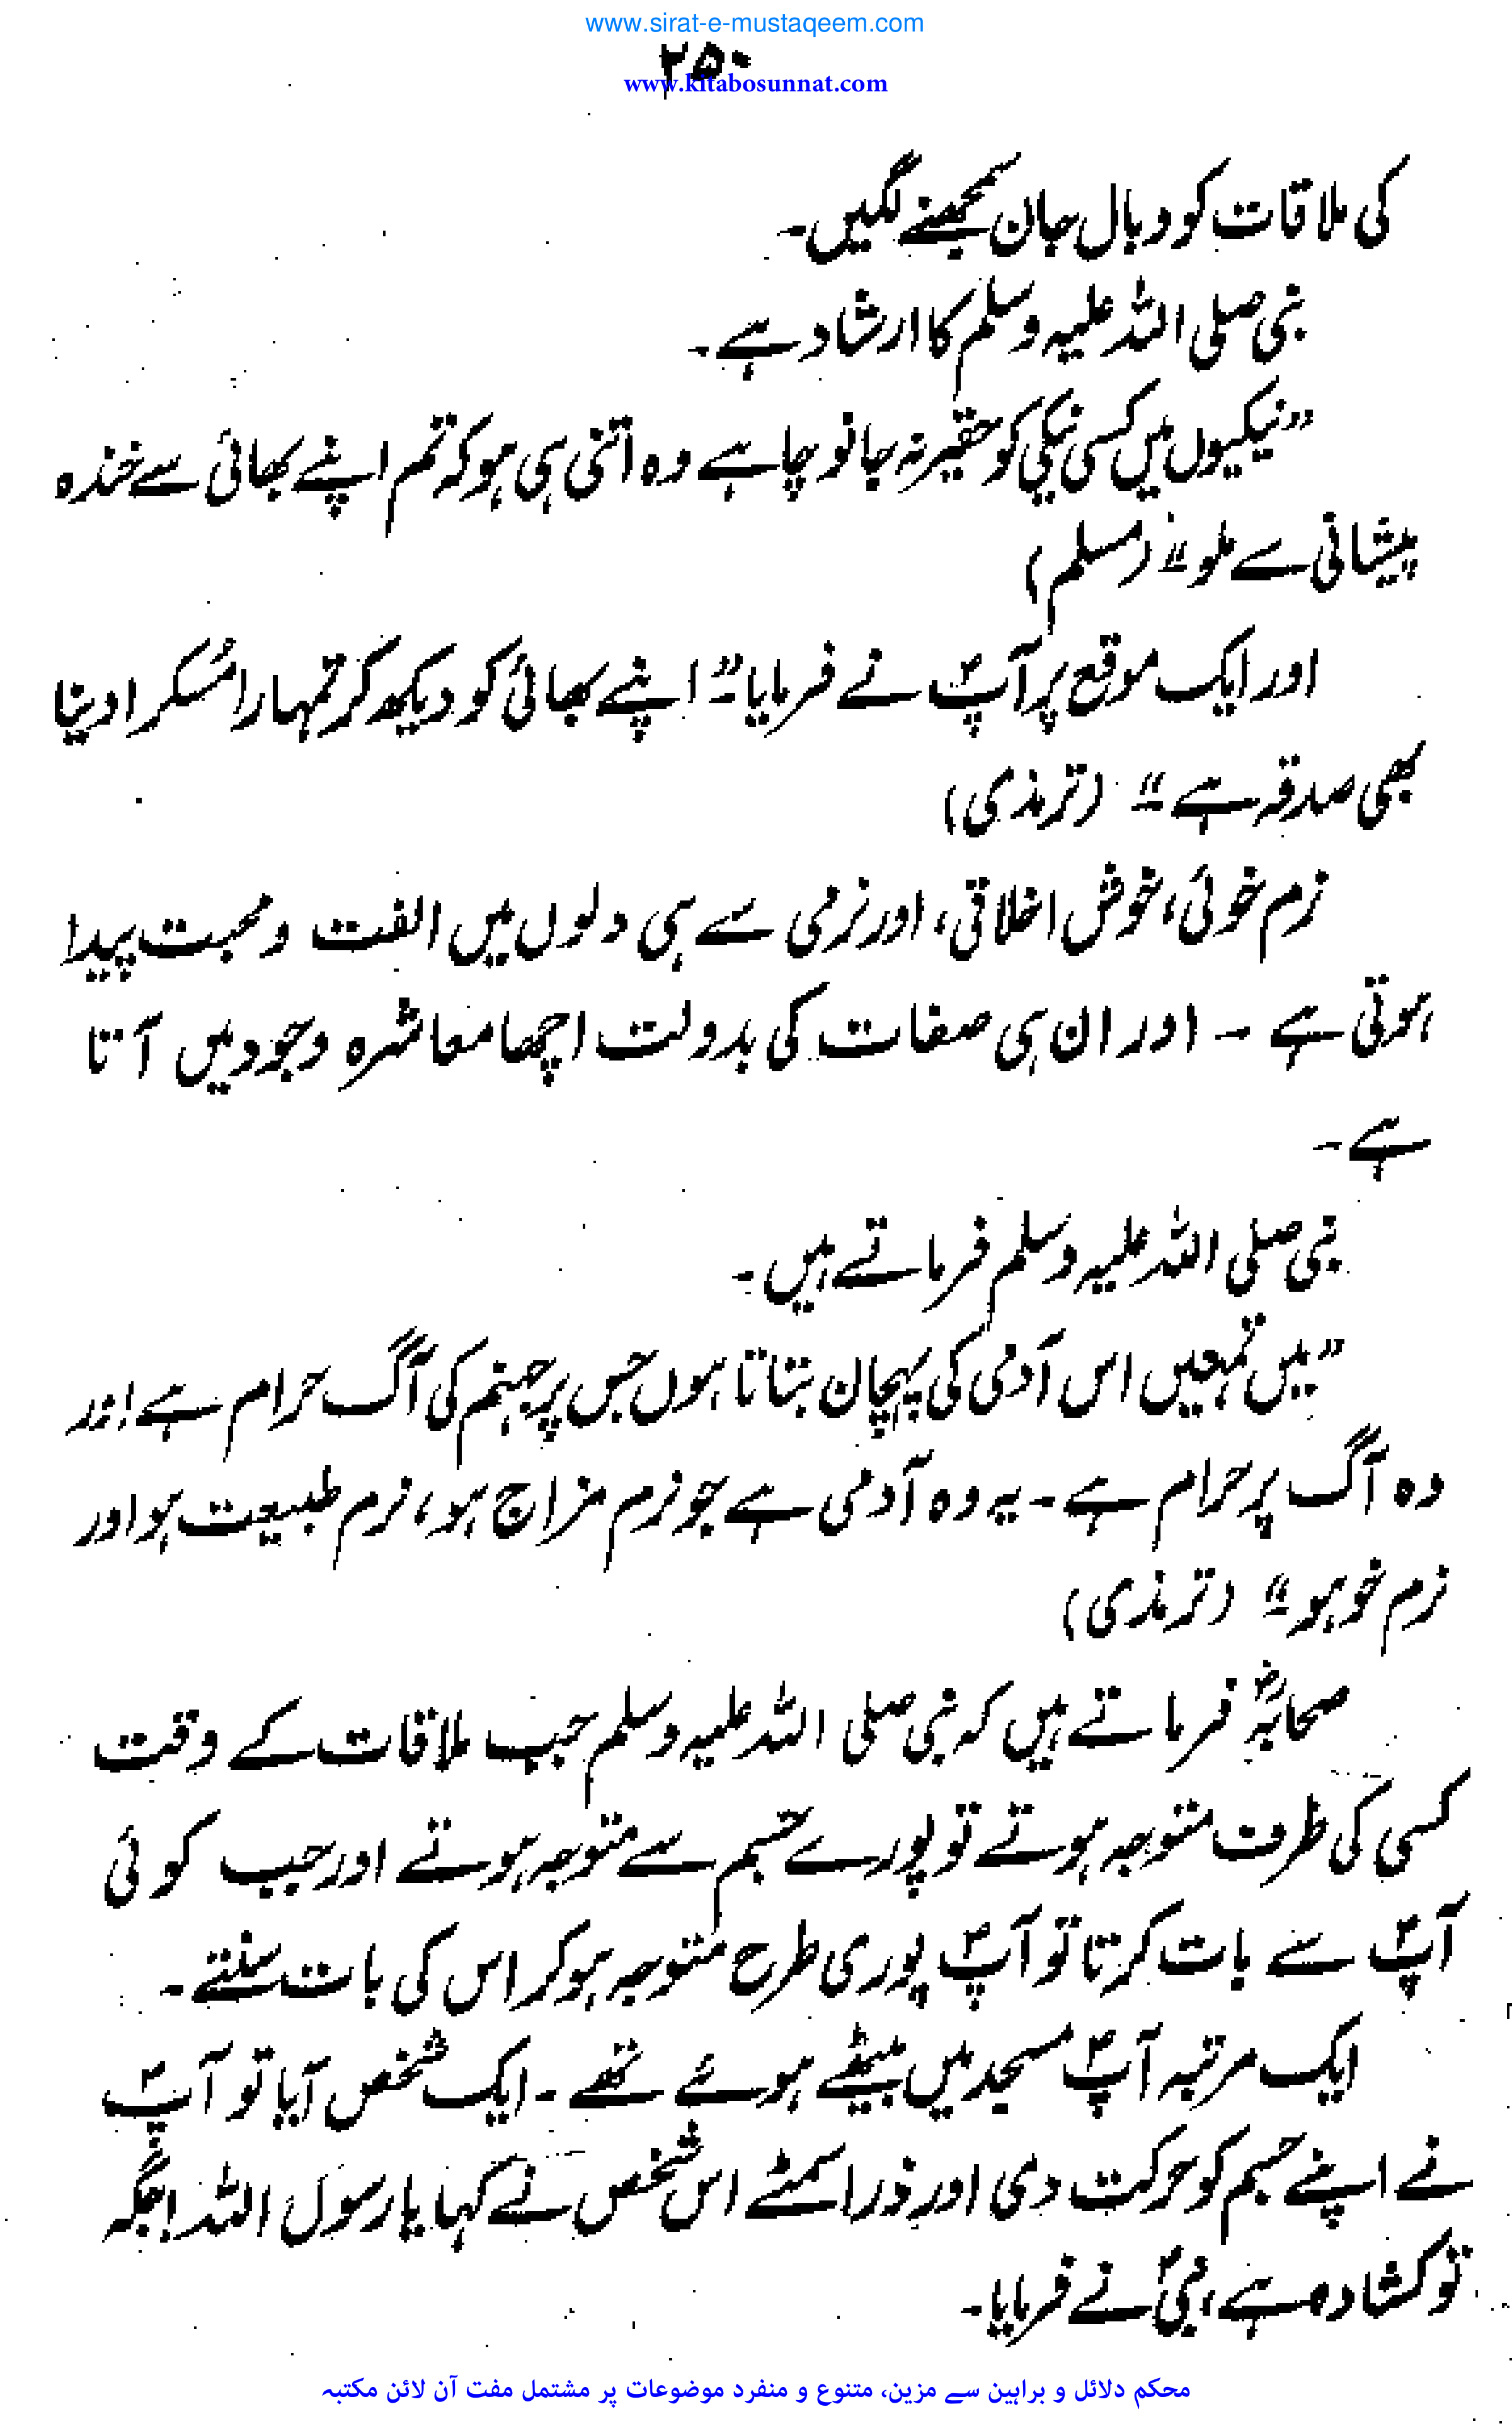 www.sirat-e-mustaqeem.com
۲۵۰
www.kitabosunnat.com
کی ملاقات کو وبال جان سمجھنے لگیں۔
نبی صلی اللہ علیہ وسلم کا ارشاد ہے۔
”نیکیوں میں کسی نیکی کو حقیر نہ جانو چاہے وہ اتنی ہی ہو کہ تم اپنے بھائی سے خندہ
پیشانی سے ملو۔“ (مسلم)
اور ایک موقع پر آپؐ نے فرمایا۔ ”اپنے بھائی کو دیکھ کر تمہارا مُسکرا دینا
بھی صدقہ ہے۔“ (ترمذی)
نرم خوئی، خوش اخلاقی، اور نرمی سے ہی دلوں میں الفت و محبت پیدا
ہوتی ہے ۔ اور ان ہی صفات کی بدولت اچھا معاشرہ وجود میں آتا
ہے۔
نبی صلی اللہ علیہ وسلم فرماتے ہیں۔
”میں تمہیں اس آدمی کی پہچان بتاتا ہوں جس پر جہنم کی آگ حرام ہے اور
وہ آگ پر حرام ہے۔ یہ وہ آدمی ہے جو نرم مزاج ہو، نرم طبیعت ہو اور
نرم خو ہو۔“ (ترمذی)
صحابہؓ فرماتے ہیں کہ نبی صلی اللہ علیہ وسلم جب ملاقات کے وقت
کسی کی طرف متوجہ ہوتے تو پورے جسم سے متوجہ ہوتے اور جب کوئی
آپؐ سے بات کرتا تو آپؐ پوری طرح متوجہ ہو کر اس کی بات سنتے۔
ایک مرتبہ آپؐ مسجد میں بیٹھے ہوئے تھے۔ ایک شخص آیا تو آپؐ
نے اپنے جسم کو حرکت دی اور ذرا سمٹے اس شخص نے کہا یا رسول اللہ! جگہ
تو کشادہ ہے، نبیؐ نے فرمایا۔
محکم دلائل و براہین سے مزین، متنوع و منفرد موضوعات پر مشتمل مفت آن لائن مکتبہ